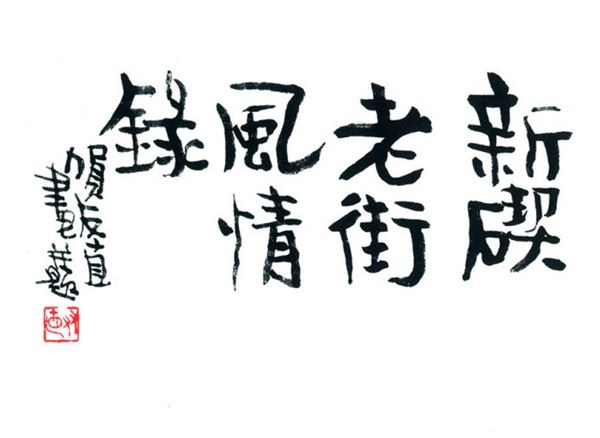 新碶
老街
風情
錄
賀友直
畫並題